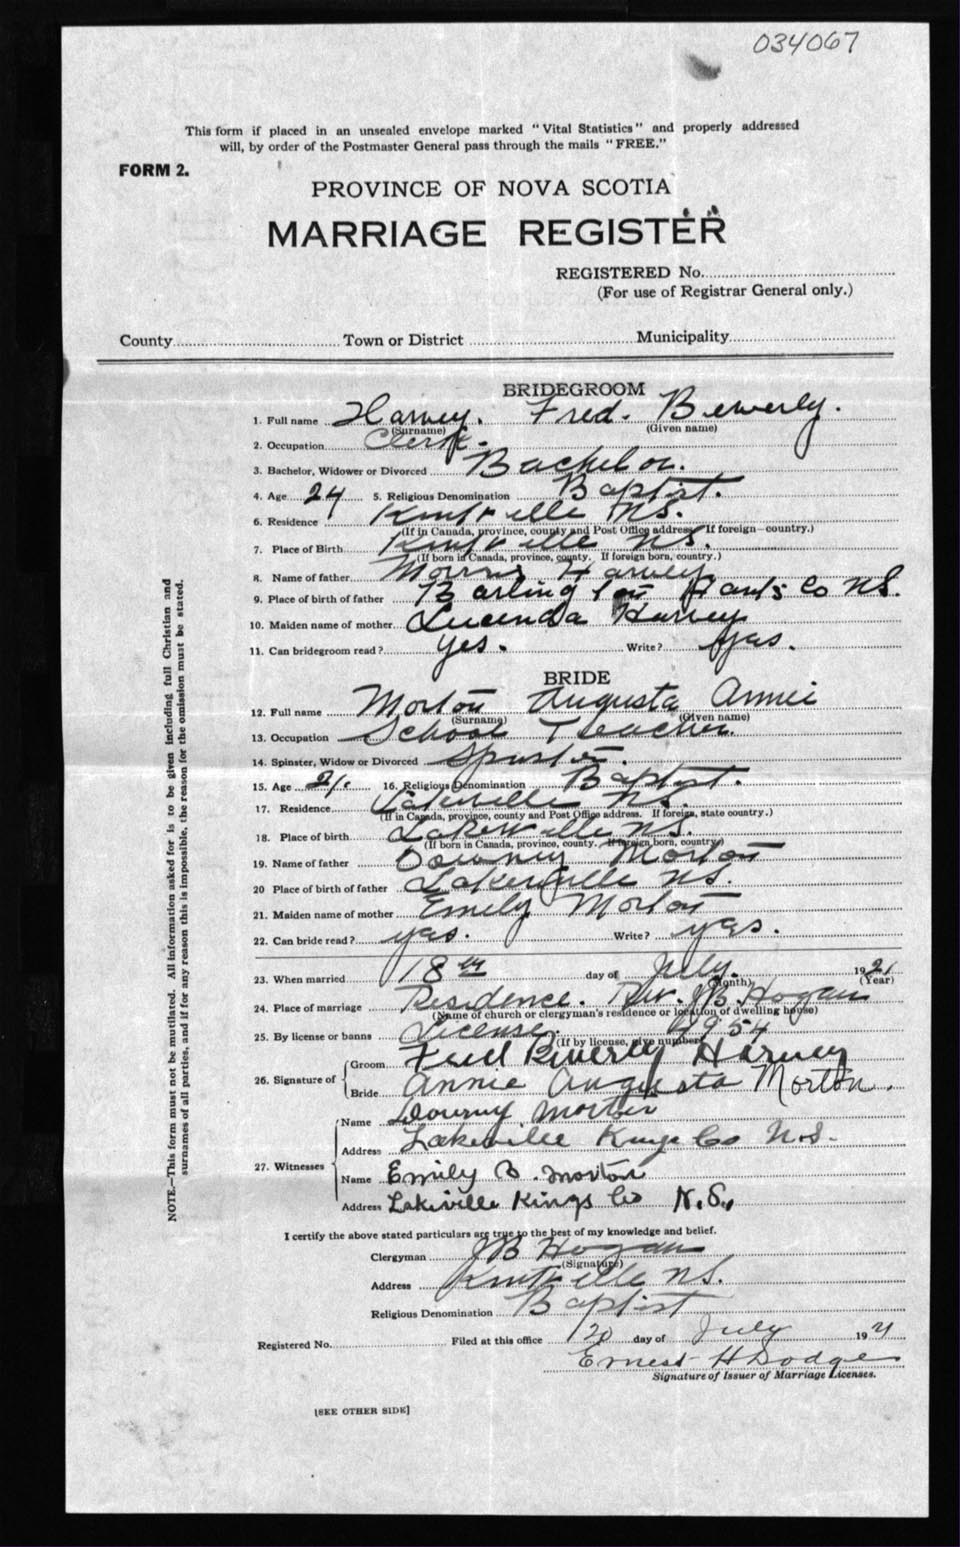 034067
This form if placed in an unsealed envelope marked "Vital Statistics" and properly addressed
will, by order of the Postmaster General pass through the mails "FREE."
FORM 2.
PROVINCE OF NOVA SCOTIA
MARRIAGE REGISTER
REGISTERED No.
(For use of Registrar General only.)
County Town or District Municipality
BRIDEGROOM
1. Full name Harvey. Fred. Bewerly.
(Surname) (Given name)
2. Occupation Clerk.
3. Bachelor, Widower or Divorced Bachelor.
4. Age 24 5. Religious Denomination Baptist.
6. Residence Kentville NS.
(If in Canada, province, county and Post Office address. If foreign country.)
7. Place of Birth Kentville NS.
(If born in Canada, province, county. If foreign born, country.)
8. Name of father Harvey
9. Place of birth of father Hants Co NS.
10. Maiden name of mother Lucinda Harvey
11. Can bridegroom read? yes. Write? yas.
BRIDE
12. Full name Morton Augusta Annie
(Surname) (Given name)
13. Occupation School Teacher.
14. Spinster, Widow or Divorced Spinster.
15. Age 21. 16. Religious Denomination Baptist.
17. Residence Lakeville NS.
(If in Canada, province, county and Post Office address. If foreign, state country.)
18. Place of birth Lakeville NS.
(If born in Canada, province, county. If foreign born, country)
19. Name of father Downey Morton
20 Place of birth of father Lakerville NS.
21. Maiden name of mother Emily Morton
22. Can bride read? yas. Write? yas.
23. When married 18th day of July. 1921
(Month) (Year)
24. Place of marriage Residence. Rev. JB Hogan
(Name of church or clergyman's residence or location of dwelling house)
25. By license or banns License. 4954
(If by license, give number)
26. Signature of
Groom Fred Beverly Harvey
Bride Annie Augusta Morton.
27. Witnesses
Name Downy Morton
Address Lakeville Kings Co N.S.
Name Emily B. Morton
Address Lakeville Kings Co N.S.,
I certify the above stated particulars are true to the best of my knowledge and belief.
Clergyman JB Hogan
(Signature)
Address Kentville NS.
Religious Denomination Baptist
Registered No. Filed at this office 20 day of July 1921
Ernest H Dodge
Signature of Issuer of Marriage Licenses.
[SEE OTHER SIDE]
NOTE.—This form must not be mutilated. All information asked for is to be given including full Christian and
surnames of all parties, and if for any reason this is impossible, the reason for the omission must be stated.